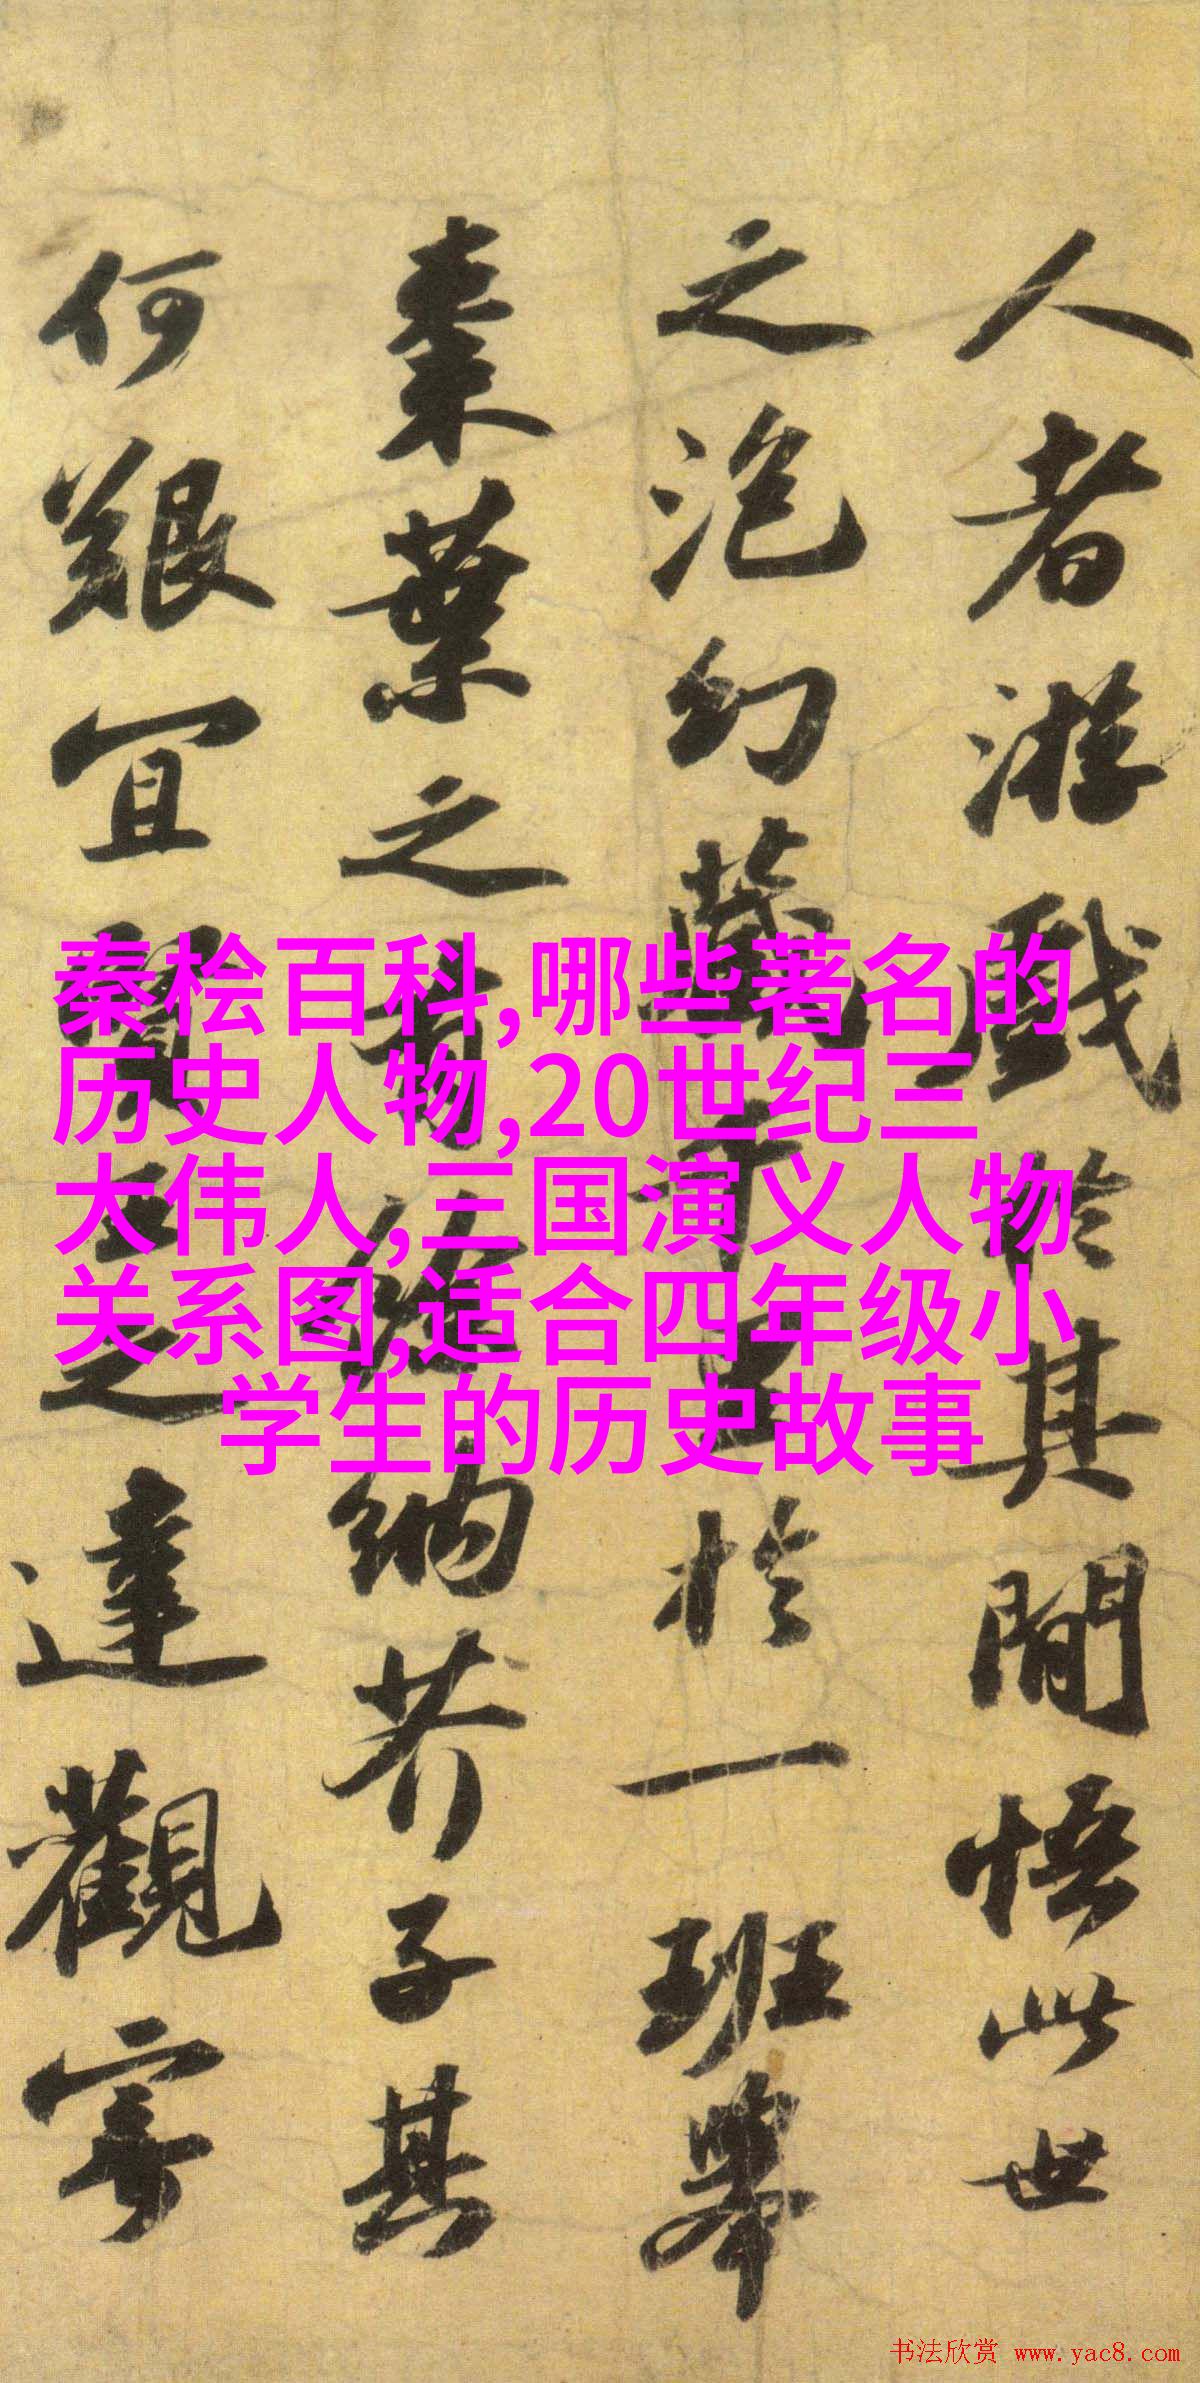 人者游戲於其閒悟此世
之泡幻藏千里於一班舉
棗葉之有餘納芥子其
何艱宜賢王之達觀寄
秦桧百科,哪些著名的
历史人物,20世纪三
大伟人,三国演义人物
关系图,适合四年级小
学生的历史故事
书法欣赏 www.yac8.com